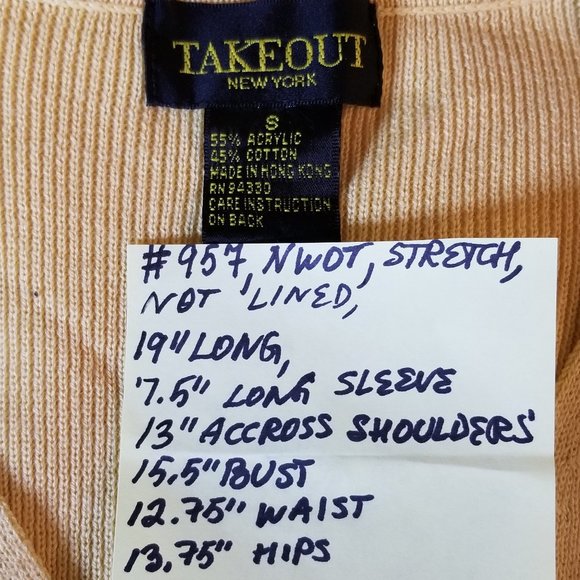 TAKEOUT
NEW YORK
S
55% ACRYLIC
45% COTTON
MADE IN HONG KONG
RN 94330
CARE INSTRUCTION
ON BACK
#957, NWOT, STRETCH,
NOT LINED,
19" LONG,
7.5" LONG SLEEVE
13" ACCROSS SHOULDERS
15.5" BUST
12.75" WAIST
13.75" HIPS